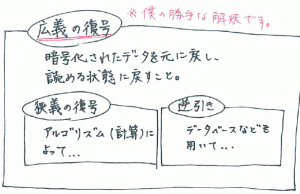 広義の復号
※僕の勝手な解釈です。
暗号化されたデータを元に戻し、
読める状態に戻すこと。
狭義の復号
アルゴリズム(計算)に
よって…
逆引き
データベースなどを
用いて…